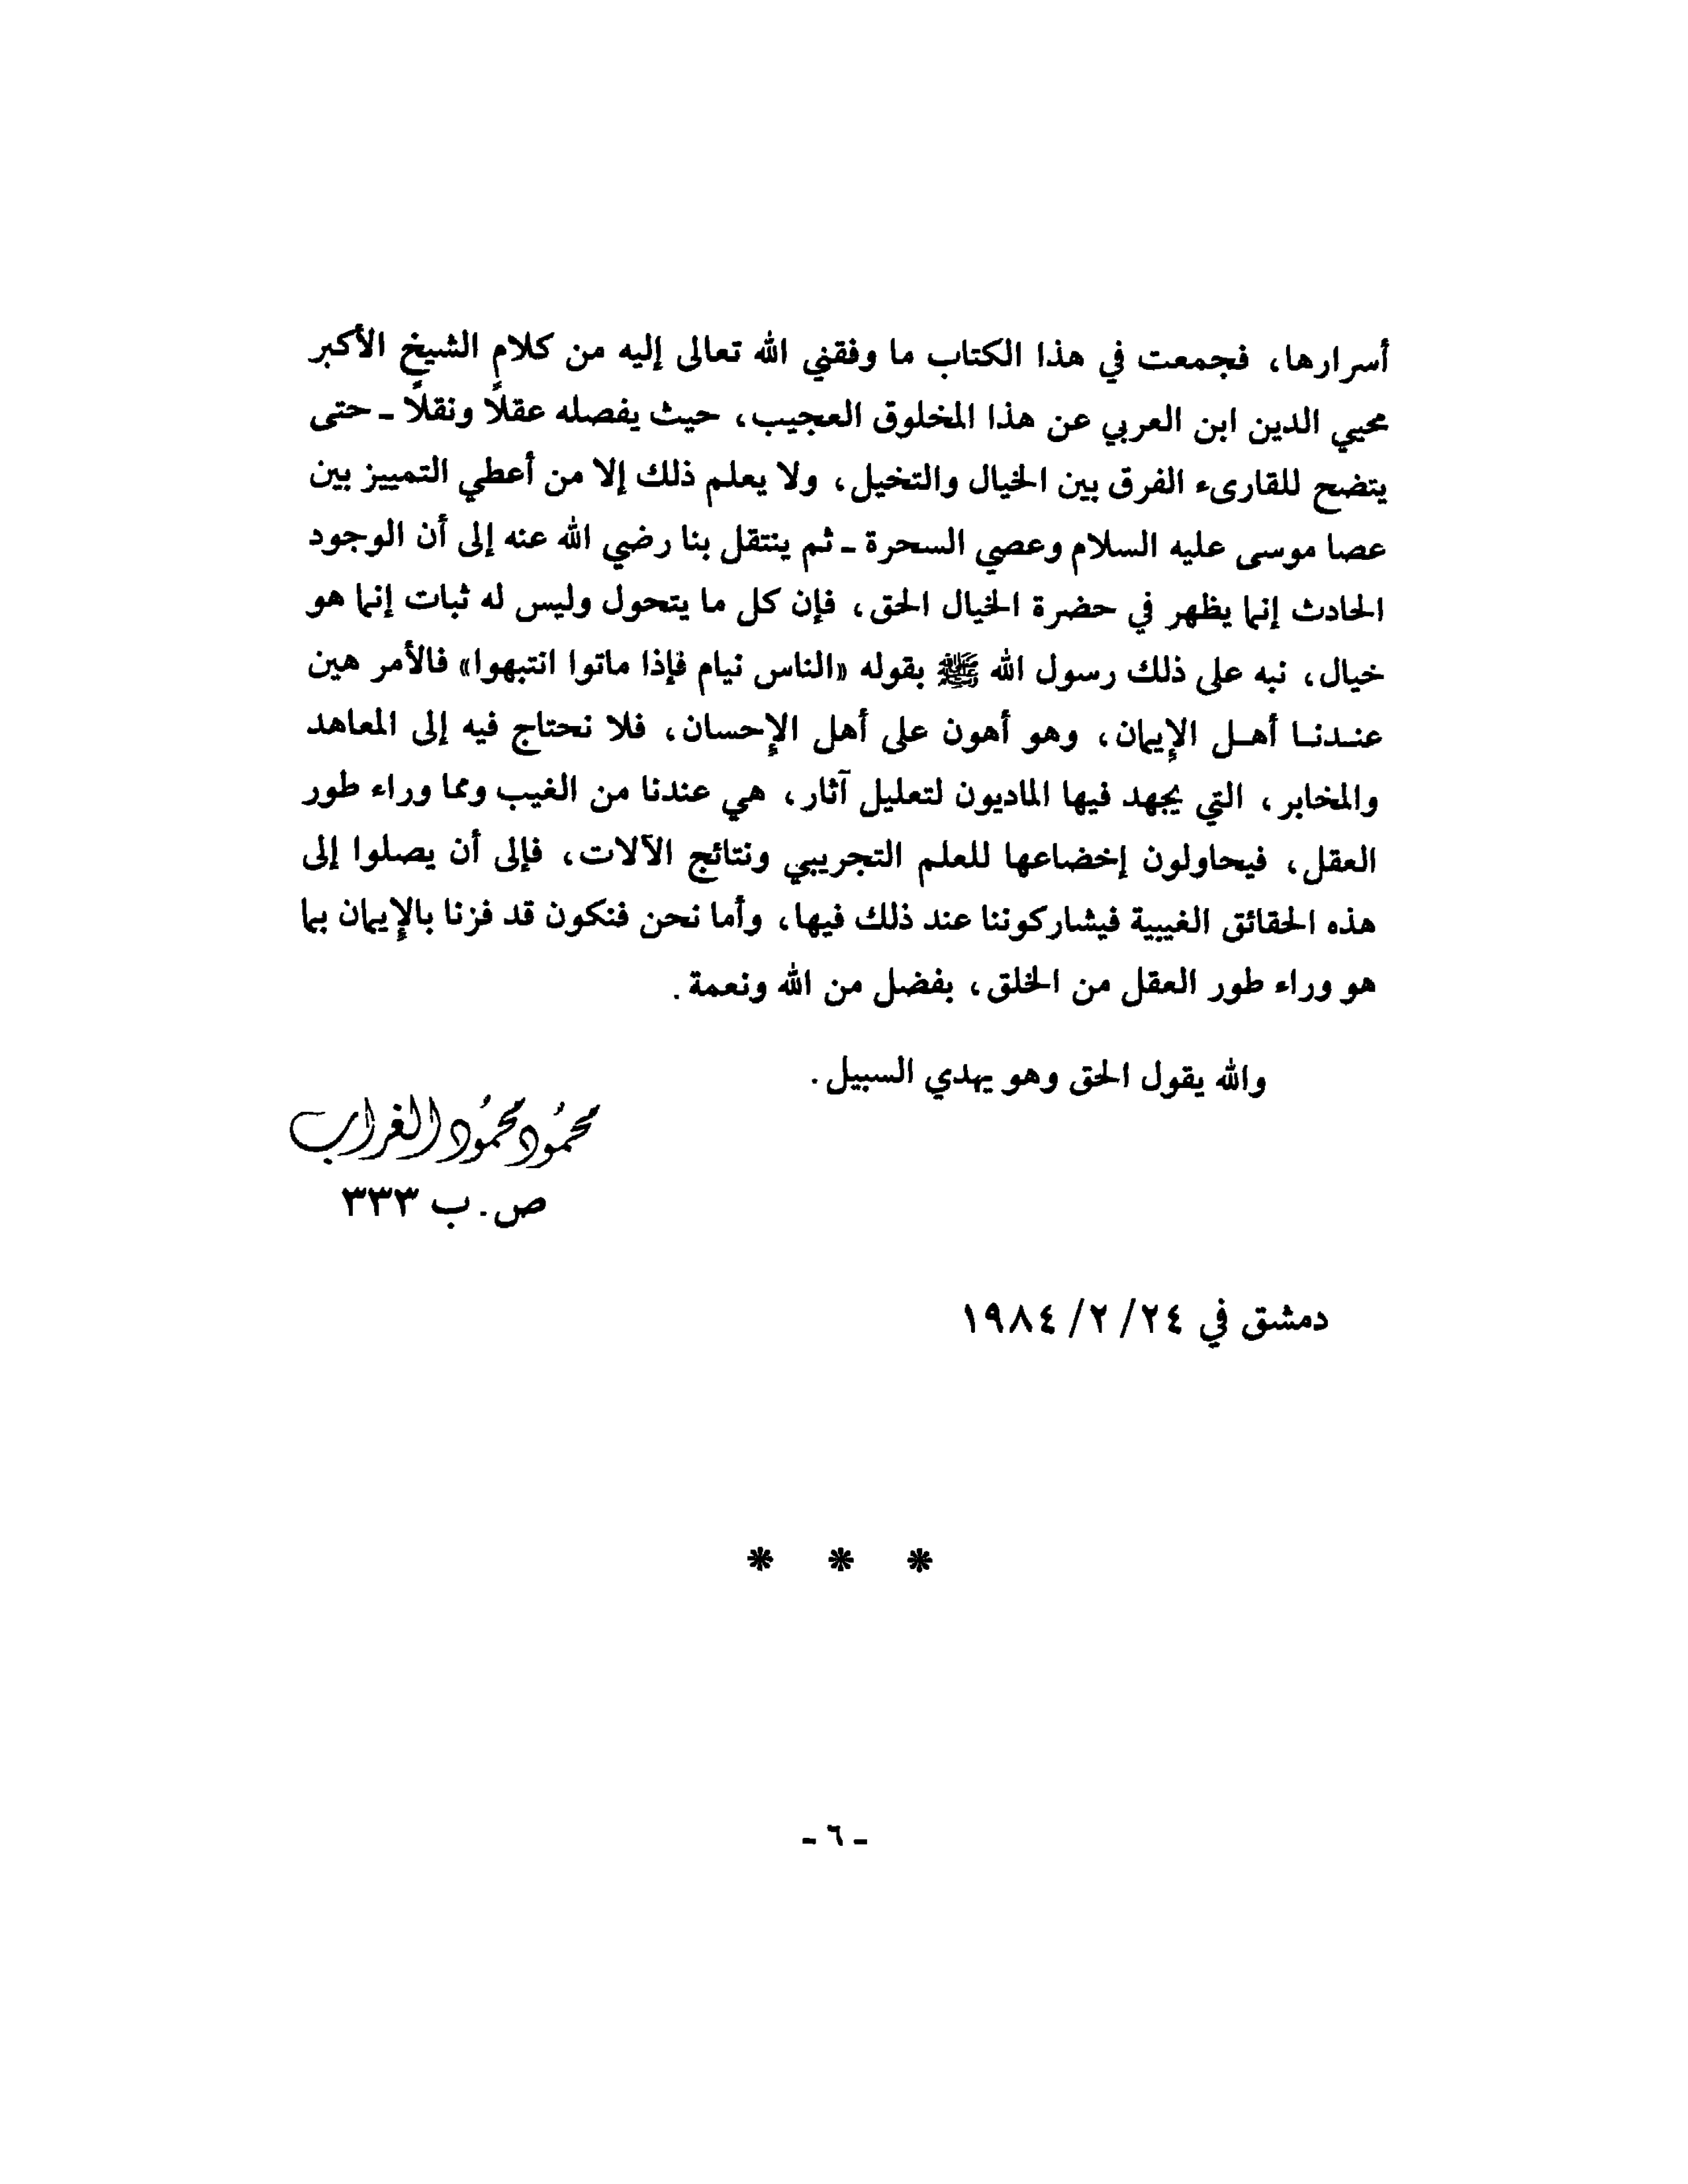 أسرارها، فجمعت في هذا الكتاب ما وفقني الله تعالى إليه من كلام الشيخ الأكبر
محيي الدين ابن العربي عن هذا المخلوق العجيب، حيث يفصله عقلاً ونقلاً ـ حتى
يتضح للقارىء الفرق بين الخيال والتخيل، ولا يعلم ذلك إلا من أعطي التمييز بين
عصا موسى عليه السلام وعصي السحرة ـ ثم ينتقل بنا رضي الله عنه إلى أن الوجود
الحادث إنما يظهر في حضرة الخيال الحق، فإن كل ما يتحول وليس له ثبات إنما هو
خيال، نبه على ذلك رسول الله ﷺ بقوله «الناس نيام فإذا ماتوا انتبهوا» فالأمر هين
عنـدنـا أهـل الإيمان، وهو أهون على أهل الإحسان، فلا نحتاج فيه إلى المعاهد
والمخابر، التي يجهد فيها الماديون لتعليل آثار، هي عندنا من الغيب ومما وراء طور
العقل، فيحاولون إخضاعها للعلم التجريبي ونتائج الآلات، فإلى أن يصلوا إلى
هذه الحقائق الغيبية فيشاركوننا عند ذلك فيها، وأما نحن فنكون قد فزنا بالإيمان بما
هو وراء طور العقل من الخلق، بفضل من الله ونعمة.
والله يقول الحق وهو يهدي السبيل.
محمُود محمُود الغراب
ص.ب ٣٣٣
دمشق في ٢٤/ ٢/ ١٩٨٤
* * *
ـ ٦ ـ